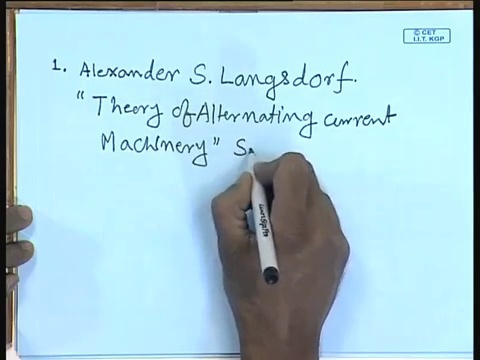 © CET
I.I.T. KGP
1. Alexander S. Langsdorf.
"Theory of Alternating current
Machinery" S